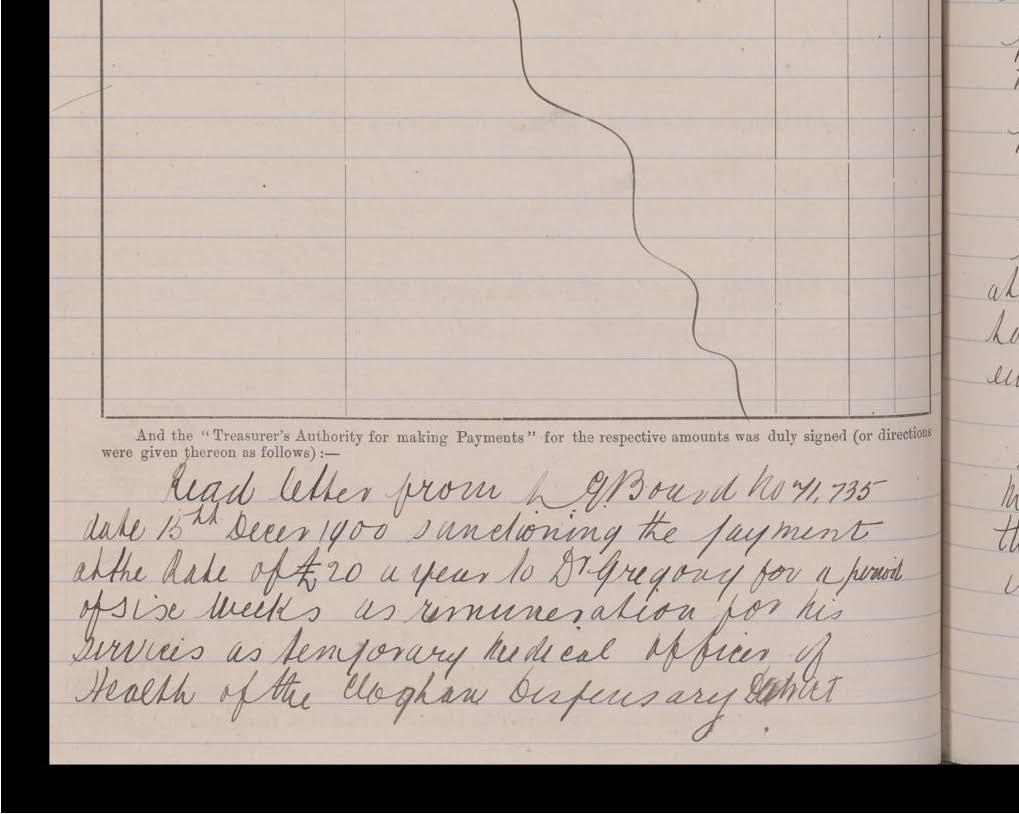 And the "Treasurer's Authority for making Payments" for the respective amounts was duly signed (or directions
were given thereon as follows):—
Read letter from L G Board No 71,735
date 15th Decer 1900 sanctioning the payment
at the Rate of £20 a year to Dr Gregory for a period
of six weeks as remuneration for his
services as temporary Medical officer of
Health of the Cloghan Dispensary District